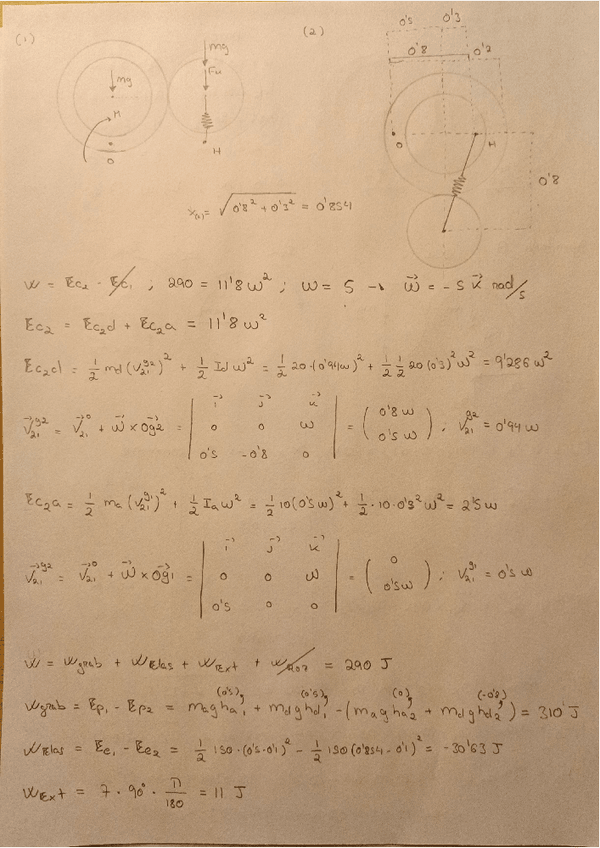 (1)
mg
mg
Fu
M
O
H
(2)
0'5 0'3
0'8 0'2
O H
0'8
x₍₂₎ = √(0'8² + 0'3²) = 0'854
W = Ec₂ - Ec₁ ; 290 = 11'8 ω² ; ω = 5 → ω⃗ = -5 k⃗ rad/s
Ec₂ = Ec₂d + Ec₂a = 11'8 ω²
Ec₂d = 1/2 md (V₂₁^g2)² + 1/2 Id ω² = 1/2 20·(0'94ω)² + 1/2 1/2 20 (0'3)² ω² = 9'286 ω²
V⃗₂₁^g2 = V⃗₂₁^o + ω⃗ × Og⃗2 = | i⃗ j⃗ k⃗ | = ( 0'8 ω ) ; V₂₁^g2 = 0'94 ω
0 0 ω 0'5 ω
0'5 -0'8 0
Ec₂a = 1/2 ma (V₂₁^g1)² + 1/2 Ia ω² = 1/2 10 (0'5 ω)² + 1/2 · 10 · 0'5² ω² = 2'5 ω
V⃗₂₁^g2 = V⃗₂₁^o + ω⃗ × Og⃗1 = | i⃗ j⃗ k⃗ | = ( 0 ) ; V₂₁^g1 = 0'5 ω
0 0 ω 0'5 ω
0'5 0 0
W = Wgrab + WElas + WExt + WRoz = 290 J
(0'5) (0'5) (0) (-0'8)
Wgrab = Ep₁ - Ep₂ = ma g ha₁ + md g hd₁ - (ma g ha₂ + md g hd₂) = 310 J
WElas = Ee₁ - Ee₂ = 1/2 150 · (0'5 - 0'1)² - 1/2 150 (0'854 - 0'1)² = -30'63 J
WExt = 7 · 90° · π/180 = 11 J